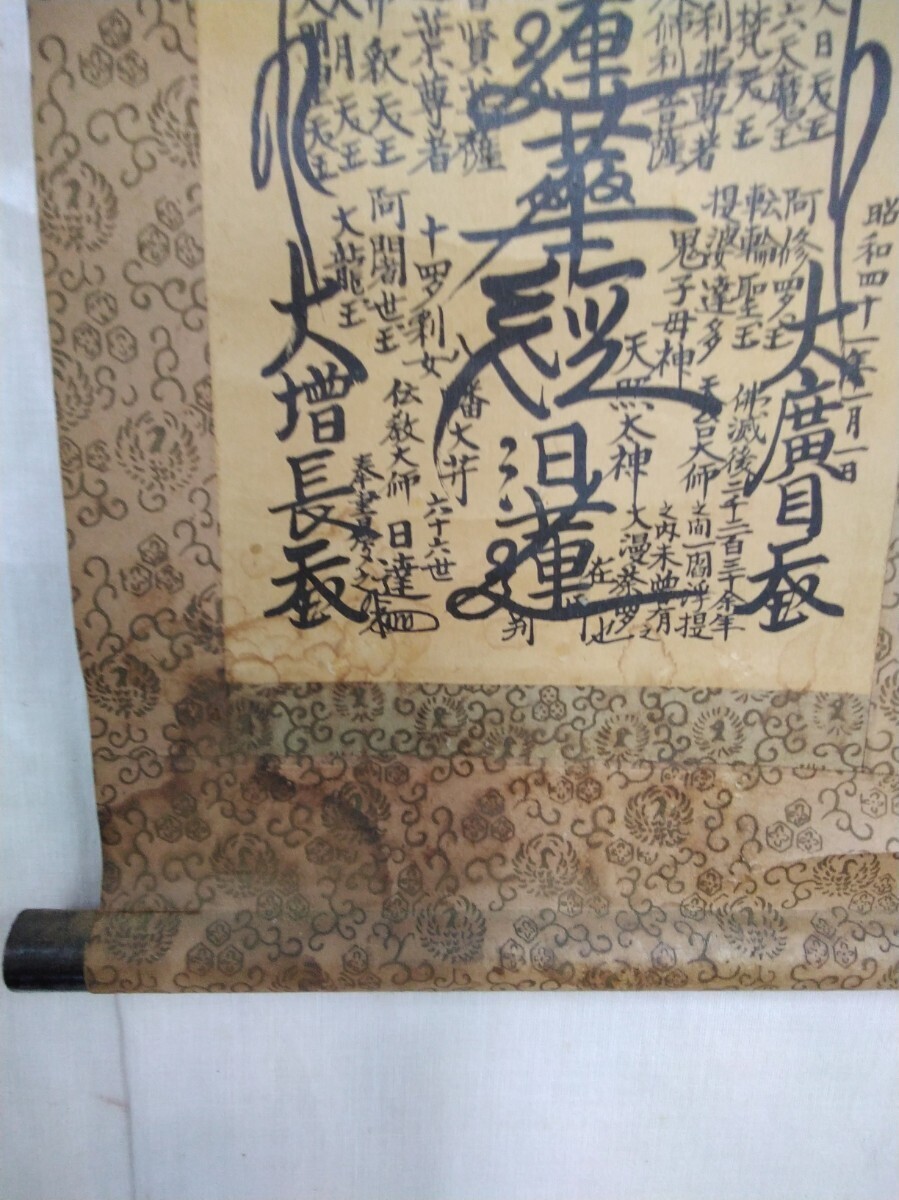 昭和四十一年一月一日
大日天王
第六天魔王
大梵天王
舎利弗尊者
文殊師利菩薩
蓮華経
日蓮
在御判
普賢菩薩
迦葉尊者
帝釈天王
大月天王
大明星天王
阿修羅王
転輪聖王
提婆達多
鬼子母神
天照太神
十四羅刹女
阿闍世王
大龍王
八幡大菩薩
大廣目天王
佛滅後二千二百三十余年
之間一閻浮提
之内未曽有之
大漫荼羅也
天台大師
伝教大師
六十六世
日達
奉書写之
大増長天王